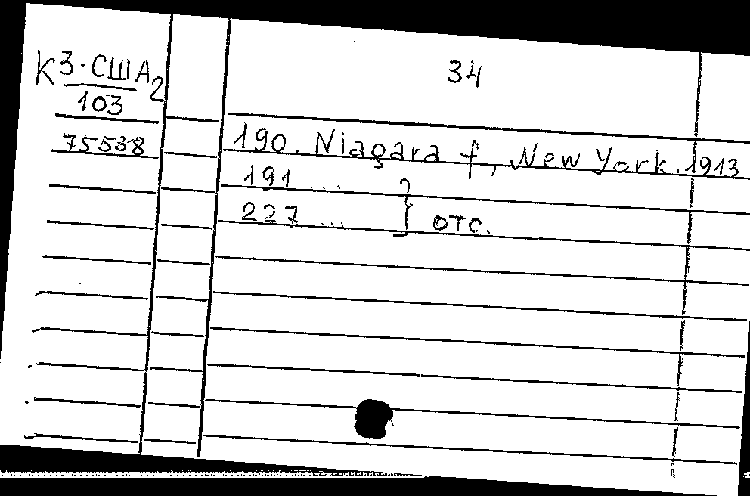 К3·США2
34
103
75538
190. Niagara f, New York. 1913
191 ...
227 ... } отс.